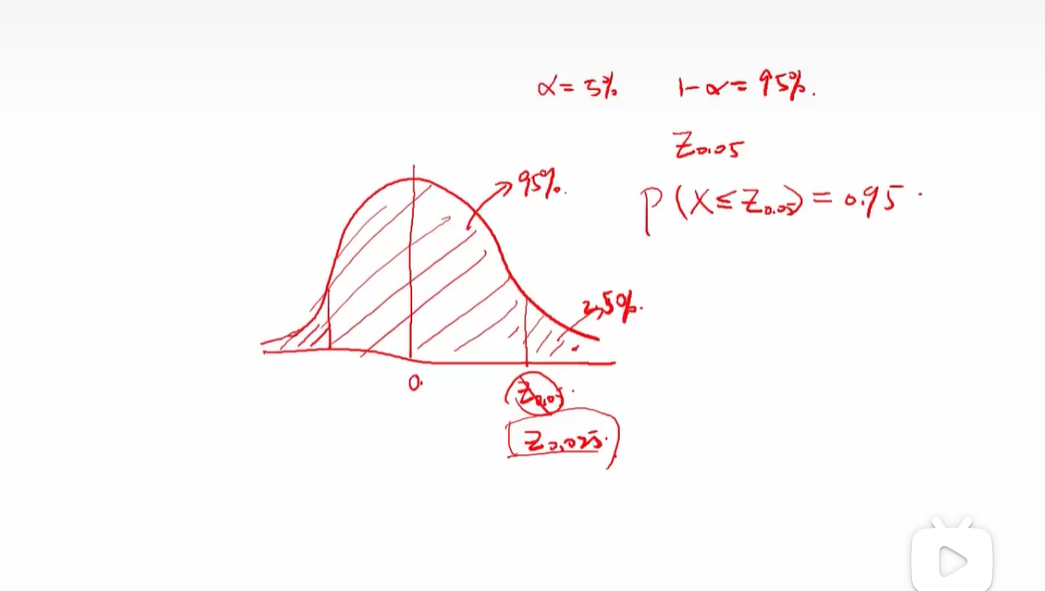 α = 5% 1-α = 95%.
Z0.05
P(X≤Z0.05) = 0.95
95%.
2.5%.
0.
Z0.05
Z0.025.